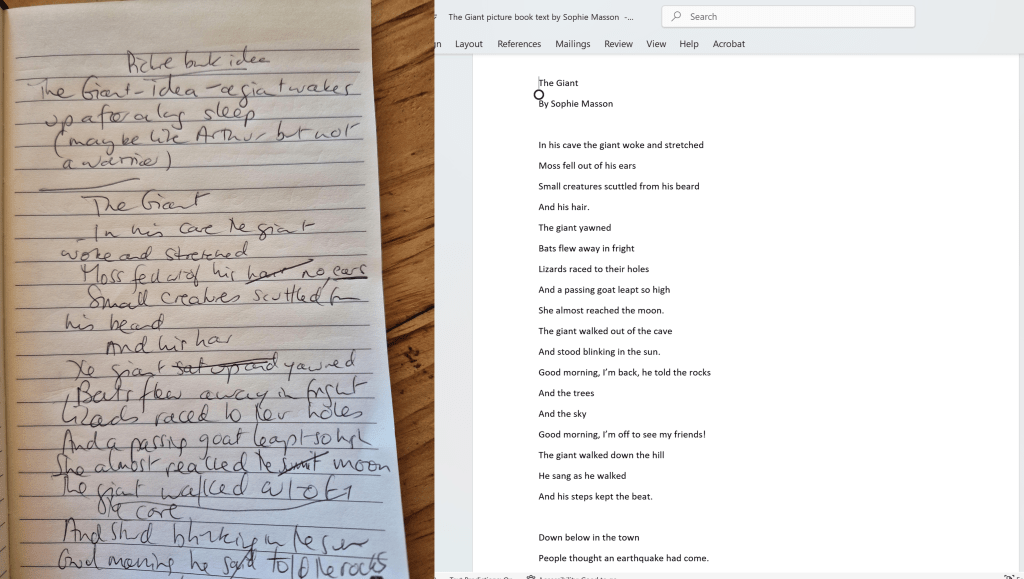 Picture book idea
The Giant - idea - a giant wakes
up after a long sleep
(maybe like Arthur but not
a warrior)
The Giant
In his cave the giant
woke and stretched
Moss fell out of his hair no, ears
Small creatures scuttled from
his beard
And his hair
The giant sat up and yawned
Bats flew away in fright
Lizards raced to their holes
And a passing goat leapt so high
She almost reached the moon
The giant walked out of
the cave
And stood blinking in the sun
Good morning he said told the rocks
The Giant picture book text by Sophie Masson -...
Search
Layout References Mailings Review View Help Acrobat
The Giant
By Sophie Masson
In his cave the giant woke and stretched
Moss fell out of his ears
Small creatures scuttled from his beard
And his hair.
The giant yawned
Bats flew away in fright
Lizards raced to their holes
And a passing goat leapt so high
She almost reached the moon.
The giant walked out of the cave
And stood blinking in the sun.
Good morning, I'm back, he told the rocks
And the trees
And the sky
Good morning, I'm off to see my friends!
The giant walked down the hill
He sang as he walked
And his steps kept the beat.
Down below in the town
People thought an earthquake had come.